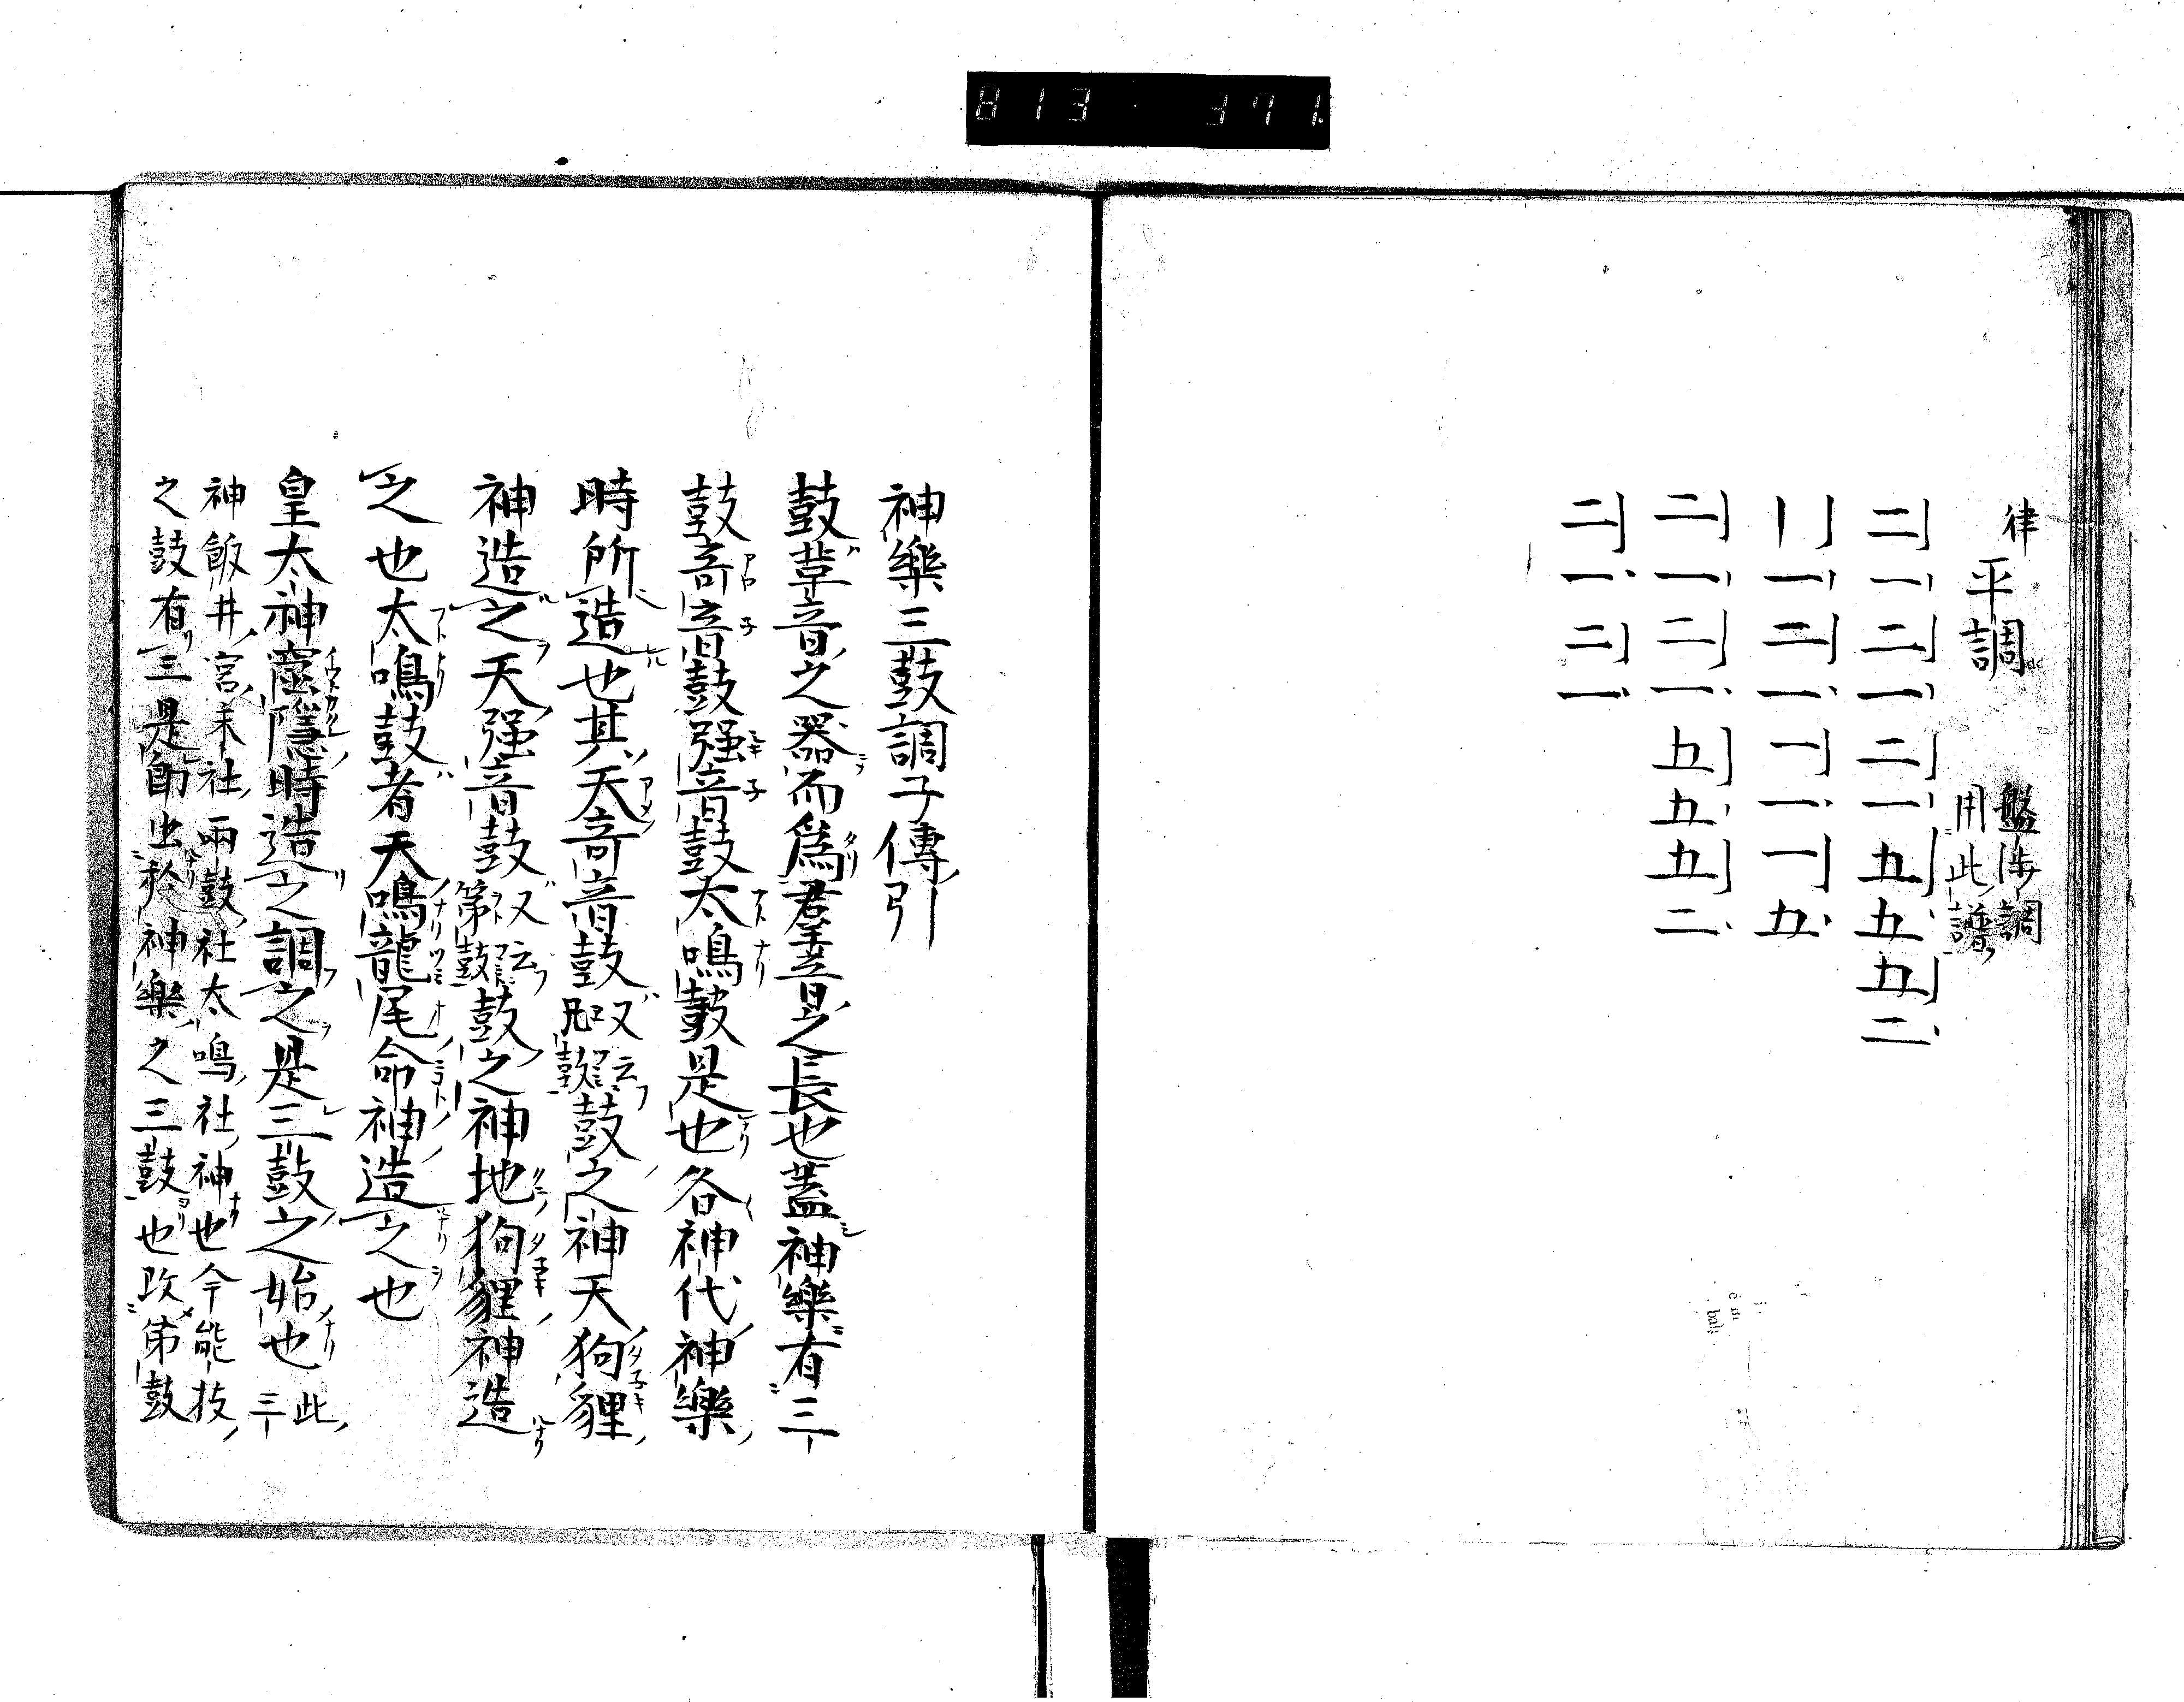 813 371
律
平調
盤渉調
用此譜
二一二一二一五五五二
一二一一一一五
二一二一五五五二
二一二一
神樂三鼓調子傳引
鼓韋音之器而爲群音之長也蓋神樂有三
鼓奇音鼓强音鼓太鳴鼓是也各神代神樂
時所造也其天奇音鼓又云兄鼓鼓之神天狗貍
神造之天强音鼓又云第鼓鼓之神地狗貍神造
之也太鳴鼓者天鳴龍尾命神造之也
皇太神窟隱時造之調之是三鼓之始也此三
神飯井宮末社兩鼓社太鳴社神也今能技
之鼓有三是即出於神樂之三鼓也改第鼓